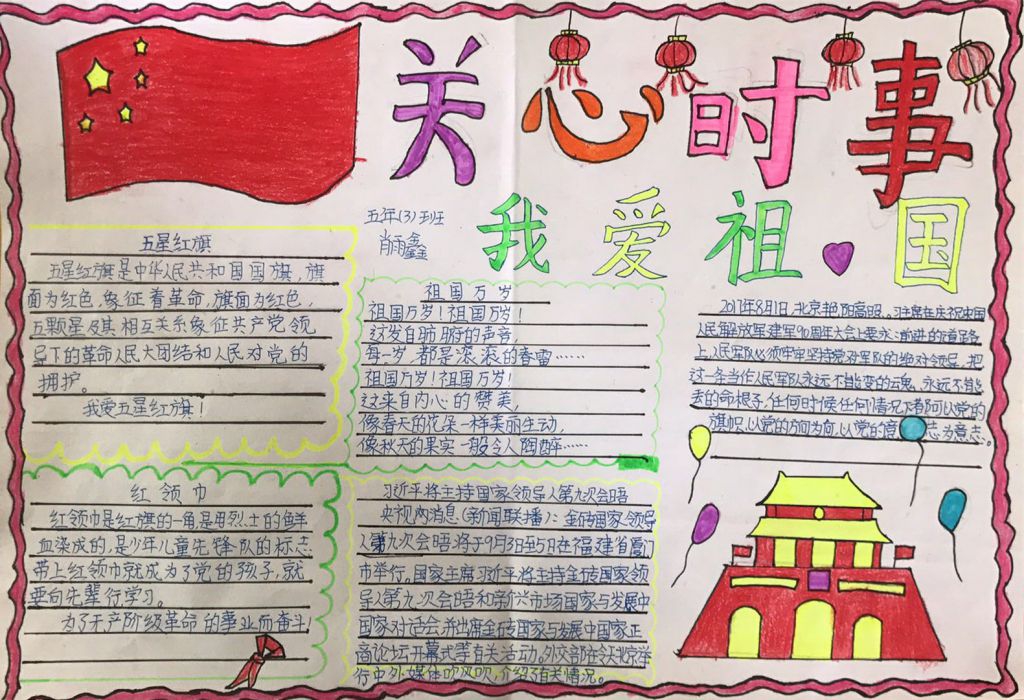 关心时事
我爱祖国
五年(3)班
肖雨鑫
五星红旗
五星红旗是中华人民共和国国旗,旗
面为红色,象征着革命,旗面为红色,
五颗星及其相互关系象征共产党领
导下的革命人民大团结和人民对党的
拥护。
我爱五星红旗!
祖国万岁
祖国万岁!祖国万岁!
这发自肺腑的声音,
每一岁,都是滚滚的春雷……
祖国万岁!祖国万岁!
这来自内心的赞美,
像春天的花朵一样美丽生动,
像秋天的果实一般令人陶醉……
2017年8月1日,北京艳阳高照。习主席在庆祝中国
人民解放军建军90周年大会上要求:前进的道路
上,人民军队必须牢牢坚持党对军队的绝对领导,把
这一条当作人民军队永远不能变的云魂、永远不能
丢的命根子,任何时候任何情况下都以党的
旗帜,以党的方向为向,以党的意志为意志。
红领巾
红领巾是红旗的一角,是用烈士的鲜
血染成的,是少年儿童先锋队的标志
带上红领巾就成为了党的孩子,就
要向先辈行学习。
为了无产阶级革命的事业而奋斗
习近平将主持国家领导人第九次会晤
央视网消息(新闻联播):金砖国家领导
人第九次会晤将于9月3日至5日在福建省厦门
市举行。国家主席习近平将主持金砖国家领
导人第九次会晤和新兴市场国家与发展中
国家对话会,并出席金砖国家与发展中国家正
商论坛开幕式等有关活动。外交部今天北京举
行中外媒体吹风吹,介绍了有关情况。